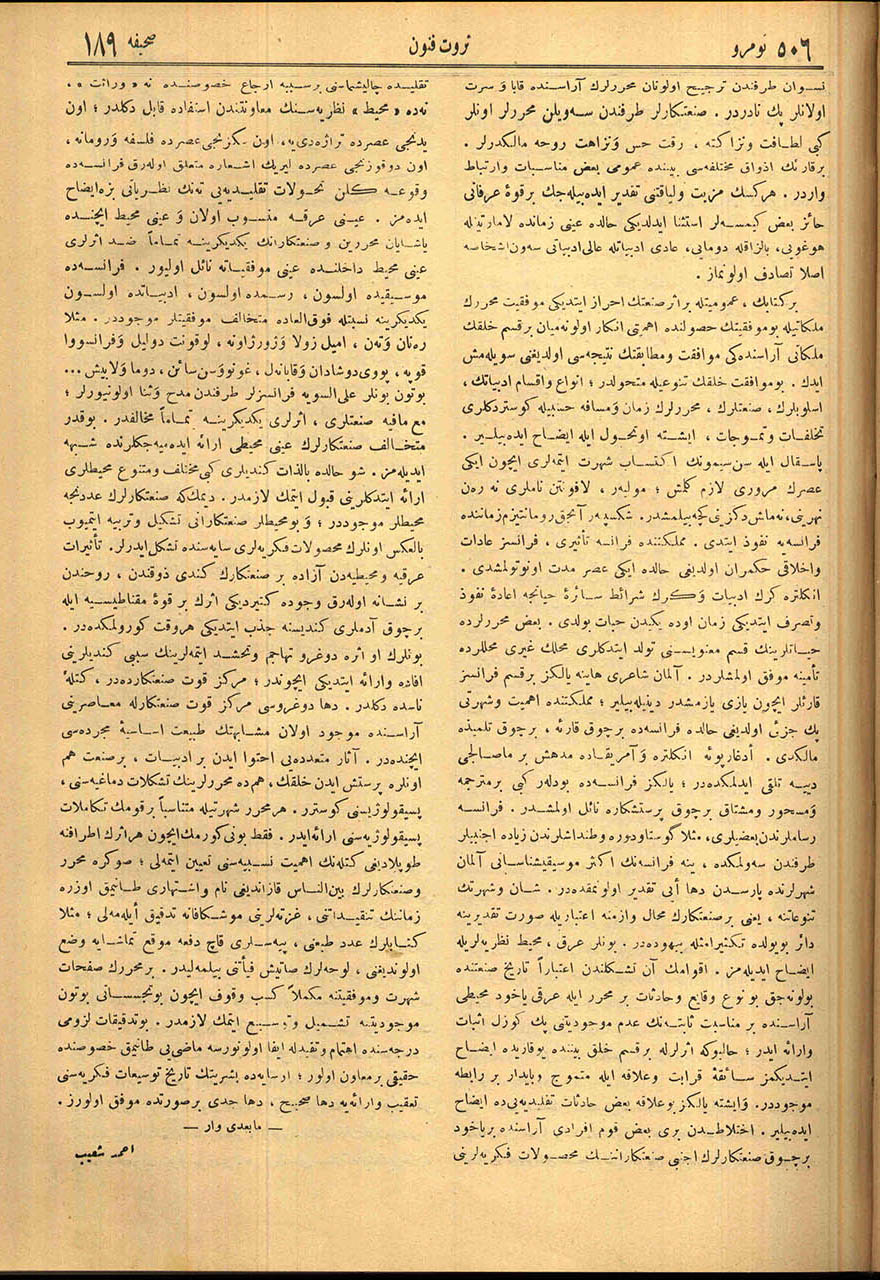 ٥٠٦ نومرو
ثروت فنون
صحیفه ١٨٩
نسوان طرفندن ترجیح اولونان محررلرك آراسنده قابا وَ سرت
اولانلر پك نادردر . صنعتكارلر طرفندن سه‌ویلن محررلر اونلر
كبی لطافت ونزاكته ، رقت حس وَنزاهت روحه مالكدرلر .
برقارئك اذواق مختلفه‌سی بیننده عمومی بعض مناسبات وارتباط
واردر . هركسك مزیت ولیاقتنی تقدیر ایده‌بیله‌جك برقوهٔ عرفانی
حائز بعض كیمسه‌لر استثنا ایدلدیكی حالده عینی زمانده لامارتینله
هوغویی، بالزاقله دومایی، عادی ادبیاتله عالی‌ادبیاتی سه‌ون‌اشخاصه
اصلا تصادف اولونماز .
بركتابك ، عمومیتله براثر صنعتك احراز ایتدیكی موفقیت محررك
ملكاتیله بوموفقیتك حصولنده اهمیتی انكار اولونه‌میان برقسم خلقك
ملكاتی آراسنده‌كی موافقت ومطابقتك نتیجه‌سی اولدیغنی سویله‌مش
ایدك . بوموافقت خلقك تنوعیله متحولدر ؛ انواع واقسام ادبیاتك ،
اسلوبلرك ، صنعتلرك ، محررلرك زمان وَمسافه حسبیله كوستردكلری
تخلفات وتموجات ، ایشته اوتحول ایله ایضاح ایده‌بیلیر .
پاسقال ایله سن‌سیمونك اكتساب شهرت ایتمه‌لری ایچون ایكی
عصرك مروری لازم كلمش ؛ مولیه‌ر ، لافونتن ناملری نه ره‌ن
نهرینی، نه‌مانش دكزینی كچه‌بیلمشدر. شكسپه‌ر آنجق رومانتیزم زماننده
فرانسه‌یه نفوذ ایتدی . مملكتنده فرانسه تأثیری ، فرانسز عادات
واخلاقی حكمران اولدیغی حالده ایكی عصر مدت اونوتولمشدی .
انكلتره كرك ادبیات وَكرك شرائط سائرهٔ حیاتجه اعادهٔ نفوذ
وتصرف ایتدیكی زمان اوده یكیدن حیات بولدی . بعض محررلرده
حیاتلرینك قسم معنویسنی تولد ایتدكلری محلك غیری محللرده
تأمینه موفق اولمشلردر . آلمان شاعری هاینه یالكز برقسم فرانسز
قارئلر ایچون یازی یازمشدر دینیله‌بیلیر ؛ مملكتنده اهمیت وشهرتی
پك جزئی اولدیغی حالده فرانسه‌ده برچوق قارئه ، برچوق تلمیذه
مالكدی . أدغارپوئه انكلتره وَآمریقاده مدهش بر ماصالجی
دییه تلقی ایدلمكده‌در ؛ یالكز فرانسه‌ده بودله‌ر كبی برمترجمه
وَمسحور ومشتاق برچوق پرستشكاره نائل اولمشدر . فرانسه
رساملرندن‌بعضیلری، مثلا گوستاودوره وطنداشلرندن زیاده اجنبیلر
طرفندن سه‌ولمكده ، ینه فرانسه‌نك اكثر موسیقیشناسانی آلمان
شهرلرنده پارسدن دها أیی تقدیر اولونمقده‌در . شان وشهرتك
تنوعاتنه ، یعنی برصنعتكارك محال وازمنه اعتباریله صورت تقدیرینه
دائر بویولده تكثیرامثله بیهوده‌در . بونلر عرق ، محیط نظریه‌لریله
ایضاح ایدیله‌مز . اقوامك آن تشكلندن اعتباراً تاریخ صنعتنده
بولونه‌جق بونوع وقایع وحادثات بر محرر ایله عرقی یاخود محیطی
آراسنده بر مناسبت ثابته‌نك عدم موجودیتنی پك كوزل اثبات
وارائه ایدر ؛ حالبوكه اثرلرله برقسم خلق بیننده یوقاریده ایضاح
ایتدیكمز سائقهٔ قرابت وعلاقه ایله متموج وپایدار بر رابطه
موجوددر. وَایشته یالكز بوعلاقه بعض حادثات تقلیدیه‌یی‌ده ایضاح
ایده‌بیلیر . اختلاطدن بری بعض قوم افرادی آراسنده بریاخود
برچوق صنعتكارلرك اجنبی صنعتكاراننك محصولات فكریه‌لرینی
تقلیده چالیشماسنی برسببه ارجاع خصوصنده نه « وراثت » ،
نه‌ده « محیط » نظریه‌سنك معاونتندن استفاده قابل دكلدر ؛ اون
یدنجی عصرده تراژه‌دی‌یه، اون سكزنجی عصرده فلسفه وَرومانه ،
اون دوقوزنجی عصرده لیریك اشعاره متعلق اوله‌رق فرانسه‌ده
وقوعه كلن تحولات تقلیدیه‌یی ته‌نك نظریاتی بزه‌ایضاح
ایده‌مز . عینی عرقه منسوب اولان وَ عینی محیط ایچنده
یاشایان محررین و صنعتكارانك یكدیكرینه تماماً ضد اثرلری
عینی محیط داخلنده عینی موفقیاته نائل اولیور . فرانسه‌ده
موسیقیده اولسون ، رسمده اولسون ، ادبیاتده اولسون
یكدیكرینه نسبتله فوق‌العاده متخالف موفقیتلر موجوددر . مثلا
ره‌نان وَته‌ن ، امیل زولا وَژورژاونه ، لوقونت دولیل وَفرانسووا
قوپه ، پووی‌دوشادان وَقابانه‌ل ، غونووَسن‌سائن، دوما وَلابیش ...
بوتون بونلر علی‌السویه فرانسزلر طرفندن مدح وثنا اولونیورلر ؛
مع مافیه صنعتلری ، اثرلری یكدیكرینه تماماً مخالفدر . بوقدر
متخالف صنعتكارلرك عینی محیطی ارائه ایده‌میه‌جكلرنده شبهه
ایدیله‌مز . شو حالده بالذات كندیلری كبی مختلف ومتنوع محیطلری
ارائه ایتدكلرینی قبول ایتمك لازمدر . دیمك‌كه صنعتكارلرك عددنجه
محیطلر موجوددر ؛ وَبومحیطلر صنعتكارانی تشكیل وتربیه ایتمیوب
بالعكس اونلرك محصولات فكریه‌لری سایه‌سنده تشكل‌ایدرلر. تأثیرات
عرقیه ومحیطیه‌دن آزاده بر صنعتكارك كندی ذوقندن ، روحندن
بر نشانه اوله‌رق وجوده كتیردیكی اثرك بر قوهٔ مقناطیسیه ایله
برچوق آدملری كندیسنه جذب ایتدیكی هروقت كورولمكده‌در .
بونلرك او اثره دوغرو تهاجم وتحشد ایتمه‌لرینك سببی كندیلرینی
افاده وارائه ایتدیكی ایچوندر ؛ مركز قوت صنعتكارده‌در ، كتلهٔ
ناسده دكلدر . دها دوغروسی مركز قوت صنعتكارله معاصرینی
آراسنده موجود اولان مشابهتك طبیعت اساسیهٔ مجرده‌سی
ایچنده‌در . آثار متعدده‌یی احتوا ایدن بر ادبیات ، برصنعت هم
اونلره پرستش ایدن خلقك، هم‌ده محررلرینك تشكلات دماغیه‌سنی،
پسیقولوژیسنی كوسترر . هرمحرر شهرتیله متناسباً برقومك تكاملات
پسیقولوژیه‌سنی ارائه‌ایدر. فقط بونی كورمك‌ایچون هراثرك اطرافنه
طوپلادیغی كتله‌نك اهمیت نسبیه‌سنی تعیین ایتمه‌لی ؛ صوكره محرر
وصنعتكارلرك بین‌الناس قازاندیغی نام واشتهاری طانیمق اوزره
زماننك تنقیداتنی ، غزته‌لرینی موشكافانه تدقیق أیله‌مه‌لی ؛ مثلا
كتابلرك عدد طبعنی ، پیه‌سلری قاچ دفعه موقع تماشایه وضع
اولوندیغنی ، لوحه‌لرك صاتیش فیأتنی بیلمه‌لیدر. برمحررك صفحات
شهرت وموفقیتنه مكملاً كسب وقوف ایچون بوتجسساتی بوتون
موجودیتنه تشمیل وتوسیع ایتمك لازمدر . بوتدقیقات لزومی
درجه‌سنده اهتمام وتقیدله ایفا اولونورسه ماضی‌یی طانیمق خصوصنده
حقیقی برمعاون اولور ؛ اوسایه‌ده بشریتك تاریخ توسیعات فكریه‌سنی
تعقیب وارائه‌یه دها صحیح ، دها جدی برصورتده موفق اولورز .
— مابعدی وار —
احمد شعیب